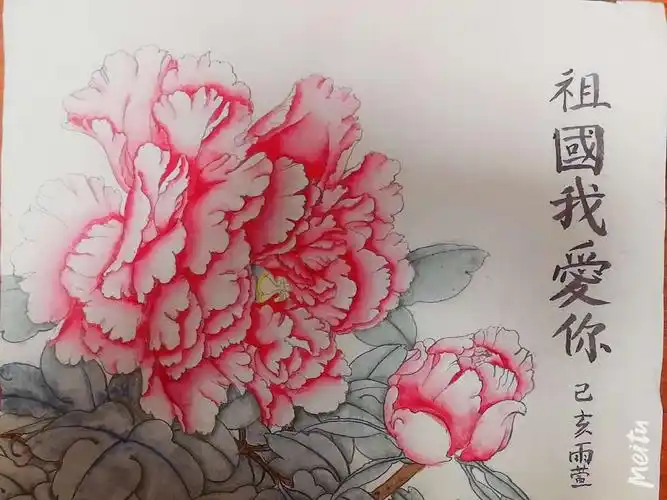 祖國我愛你
己亥雨萱
Meitu